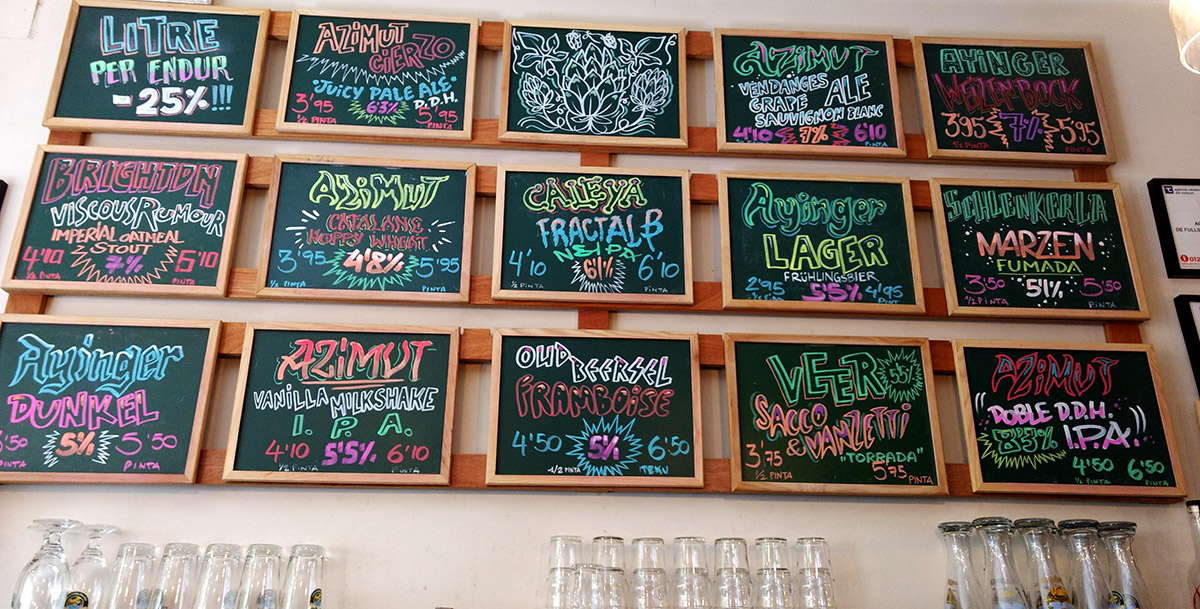 LITRE
PER ENDUR
-25%!!!
AZIMUT
CIERZO
"JUICY PALE ALE"
3'95 6'3% D.D.H. 5'95
1/2 PINTA PINTA
AZIMUT
VENDANGES
GRAPE ALE
SAUVIGNON BLANC
4'10 7% 6'10
1/2 PINTA PINTA
AYINGER
WEIZENBOCK
3'95 7% 5'95
1/2 PINTA PINTA
BRIGHTON
VISCOUS RUMOUR
IMPERIAL OATMEAL
STOUT
4'10 7% 6'10
1/2 PINTA PINTA
AZIMUT
CATALANE
HOPPY WHEAT
3'95 4'8% 5'95
1/2 PINTA PINTA
CALLEYA
FRACTALB
NEIPA
4'10 6'1% 6'10
1/2 PINTA PINTA
Ayinger
LAGER
FRÜHLINGSBIER
2'95 5'5% 4'95
1/2 PINTA PINT
SCHLENKERLA
MARZEN
FUMADA
3'50 5'1% 5'50
1/2 PINTA PINTA
Ayinger
DUNKEL
3'50 5% 5'50
PINTA PINTA
AZIMUT
VANILLA MILKSHAKE
I.P.A.
4'10 5'5% 6'10
1/2 PINTA PINTA
OUD BEERSEL
FRAMBOISE
4'50 5% 6'50
1/2 PINTA TEKU
VEER 5'5%
SACCO
& VANZETTI
"TORRADA"
3'75 5'75
1/2 PINTA PINTA
AZIMUT
DOBLE D.D.H.
8'5% I.P.A.!
4'50 6'50
1/2 PINTA PINTA
DE FULLS
012